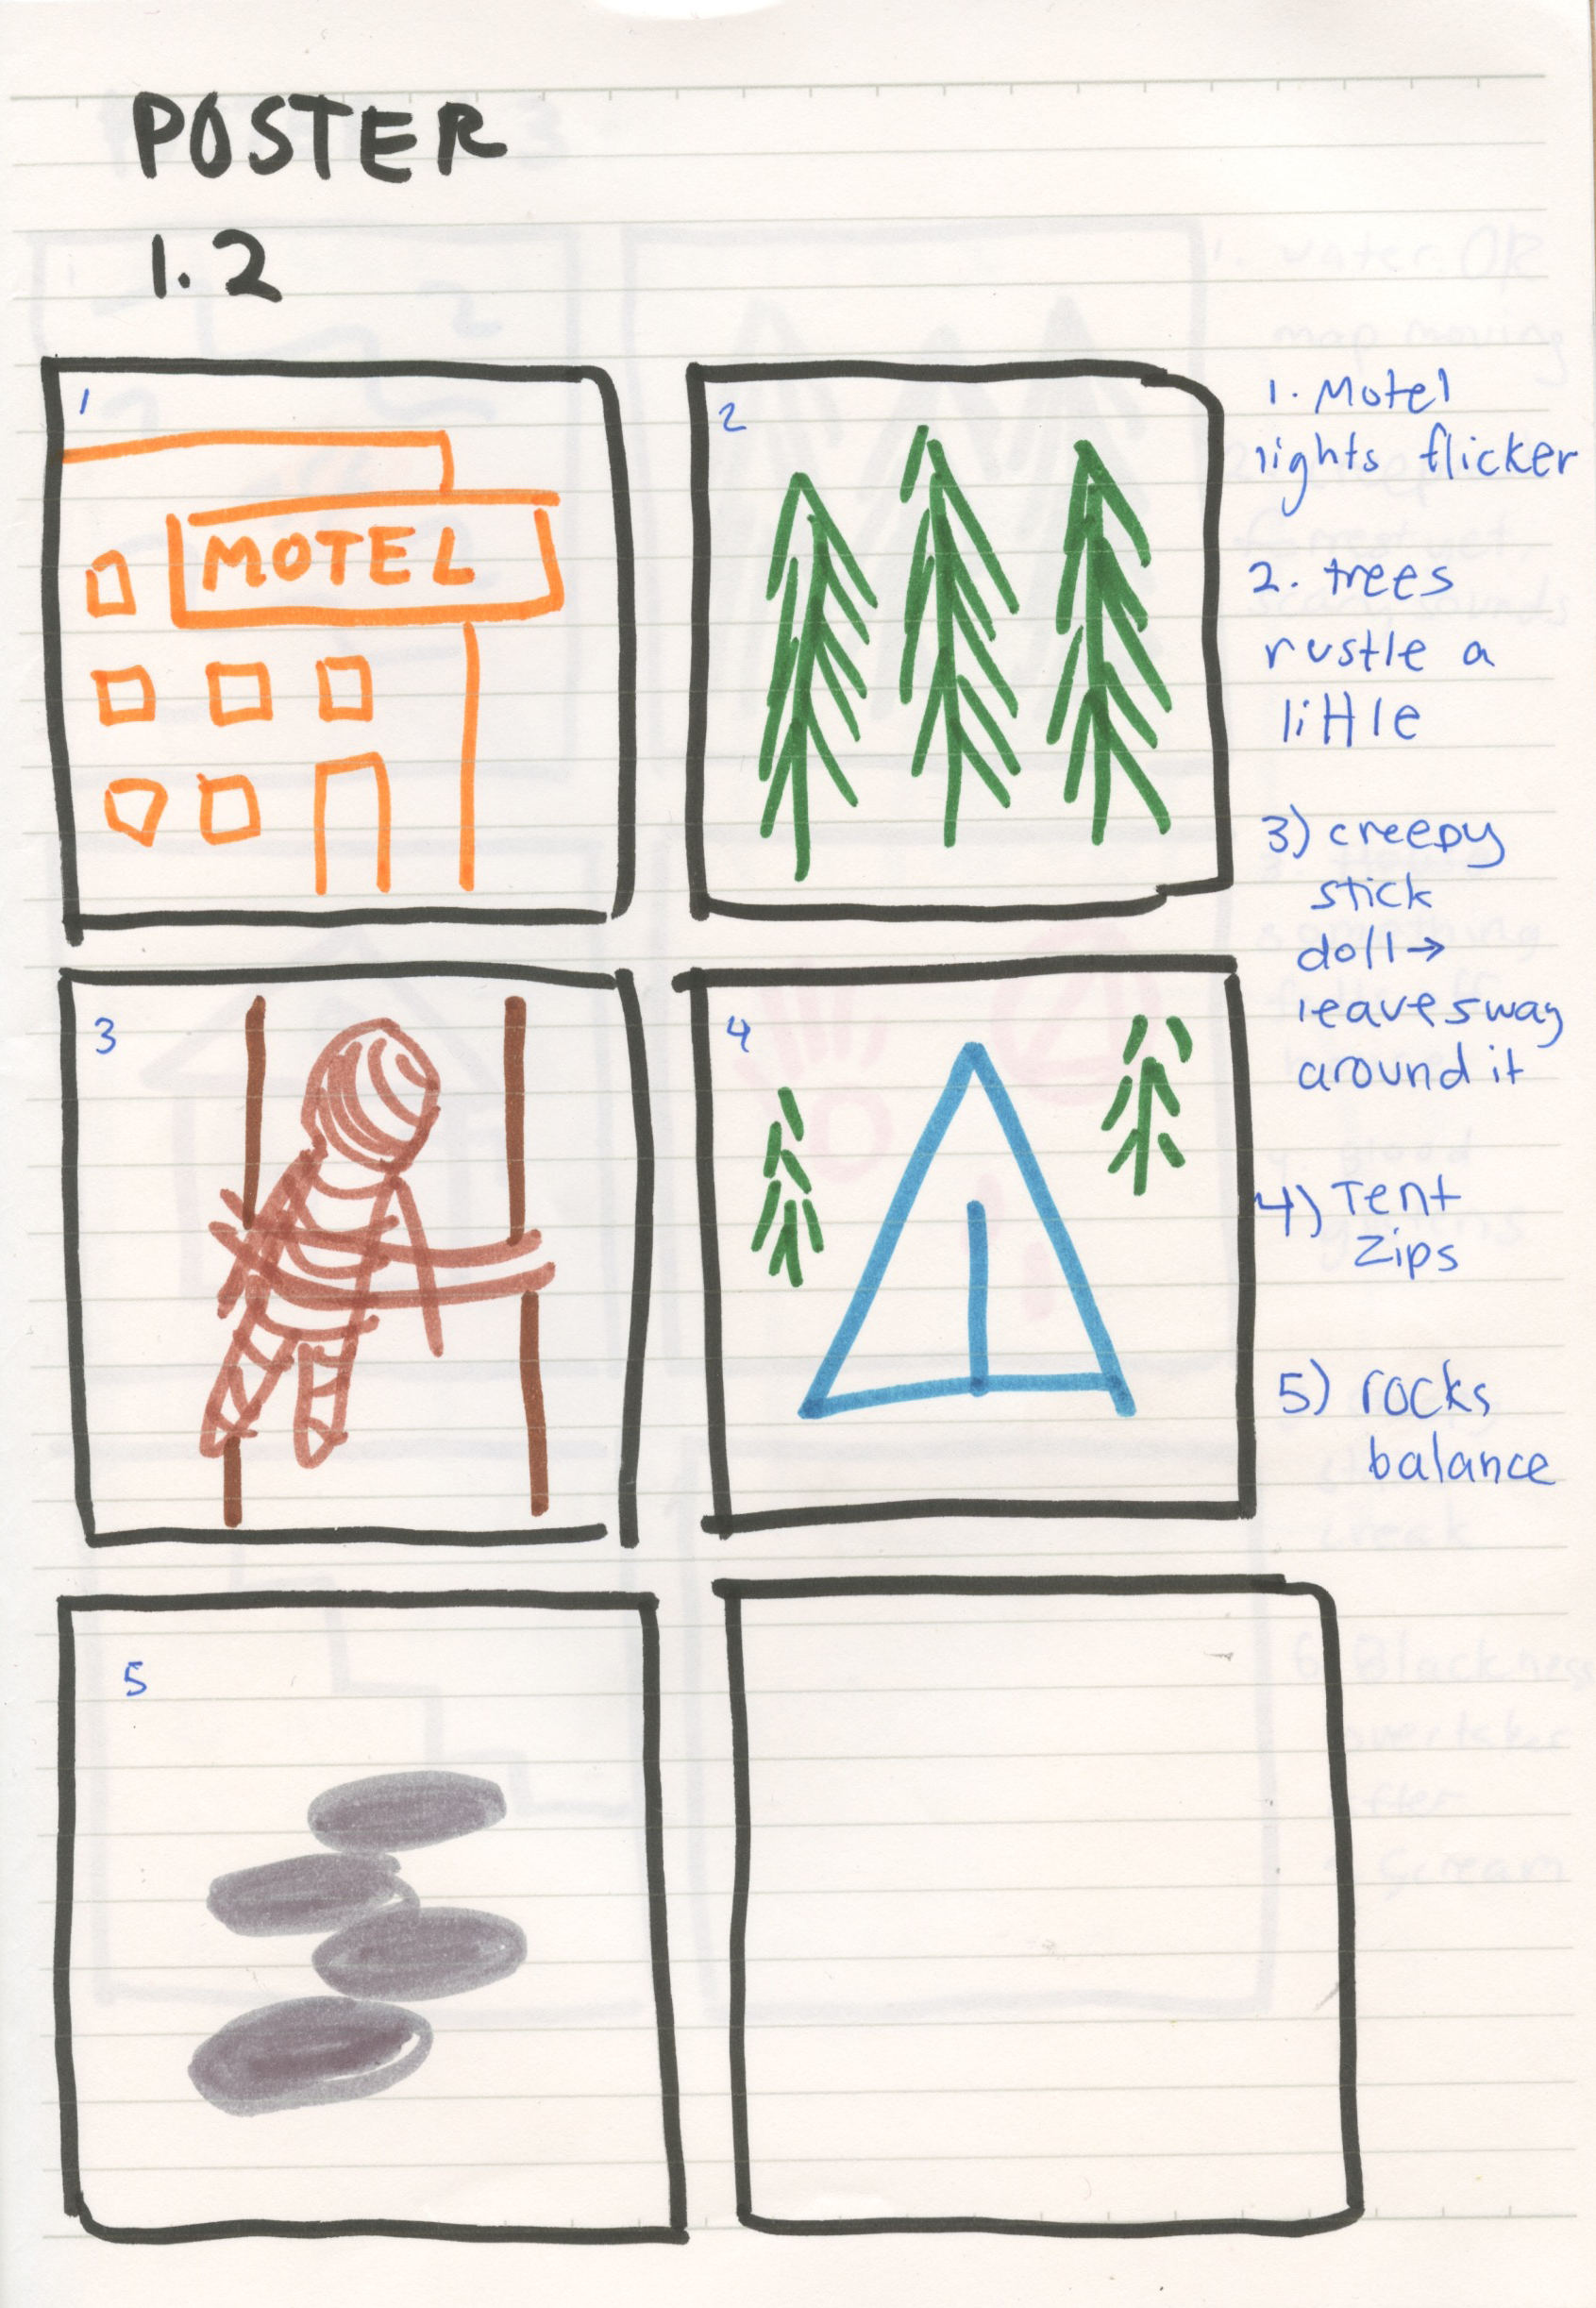 POSTER
1.2
1
MOTEL
2
3
4
5
1. Motel
lights flicker
2. trees
rustle a
little
3) creepy
stick
doll→
leaves sway
around it
4) Tent
Zips
5) rocks
balance